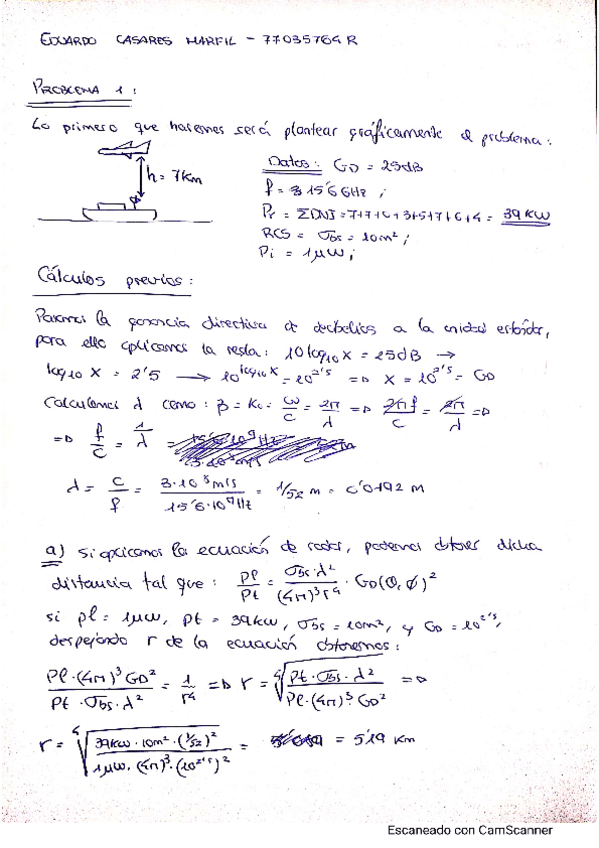 EDUARDO CASARES MARFIL - 77035764R
PROBLEMA 1:
Lo primero que haremos será plantear gráficamente el problema:
h = 7Km
Datos: GD = 25dB
f = 15'6 GHz ;
Pt = ΣDNI = 7+7+0+3+5+7+6+4 = 39 KW
RCS = σbs = 10m² ;
Pi = 1μW ;
Cálculos previos:
Pasamos la ganancia directiva de decibelios a la unidad estándar,
para ello aplicamos la resta: 10 log10 X = 25dB →
log10 X = 2'5 → 10^log10 X = 10^2'5 => X = 10^2'5 = GD
Calculamos λ como: β = K0 = ω/c = 2π/λ => 2πf/c = 2π/λ =>
=> f/c = 1/λ
λ = c/f = 3·10⁸ m/s / 15'6·10⁹ Hz = 1/52 m = 0'0192 m
a) Si aplicamos la ecuación de radar, podemos obtener dicha
distancia tal que : Pl/Pt = σbs·λ²/(4π)³r⁴ · GD(θ,φ)²
si Pl = 1μW, Pt = 39KW, σbs = 10m², y GD = 10^2'5,
despejando r de la ecuación obtenemos:
Pl·(4π)³ GD²/Pt·σbs·λ² = 1/r⁴ => r = ⁴√(Pt·σbs·λ²/Pl·(4π)³·GD²) =>
r = ⁴√(39KW·10m²·(1/52)²/1μW·(4π)³·(10^2'5)²) = 5'19 Km
Escaneado con CamScanner